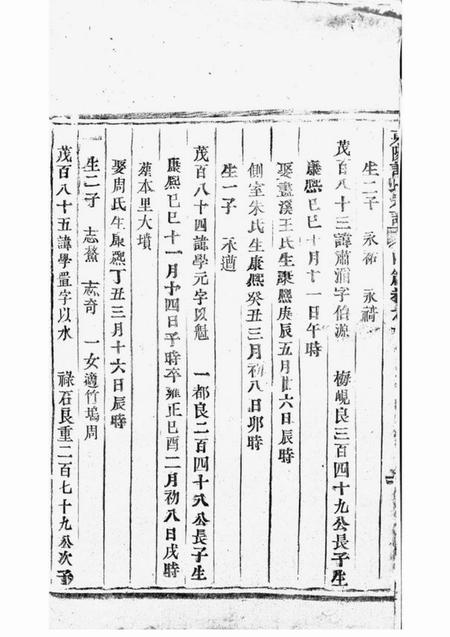 生二子 永祚 永禱
茂百八十三諱肅潤字伯源 梅峴良三百四十九公長子生
康熙己巳十月十一日午時
娶盡溪王氏生康熙庚辰五月廿六日辰時
側室朱氏生康熙癸丑三月初八日卯時
生一子 永遒
茂百八十四諱學元字以魁 一都良二百四十八公長子生
康熙己巳十一月十四日子時卒雍正己酉二月初八日戌時
葬本里大墳
娶周氏生康熙丁丑三月十六日辰時
生二子 志鰲 志奇 一女適竹塢周
茂百八十五諱學置字以水 祿石良重二百七十九公次子